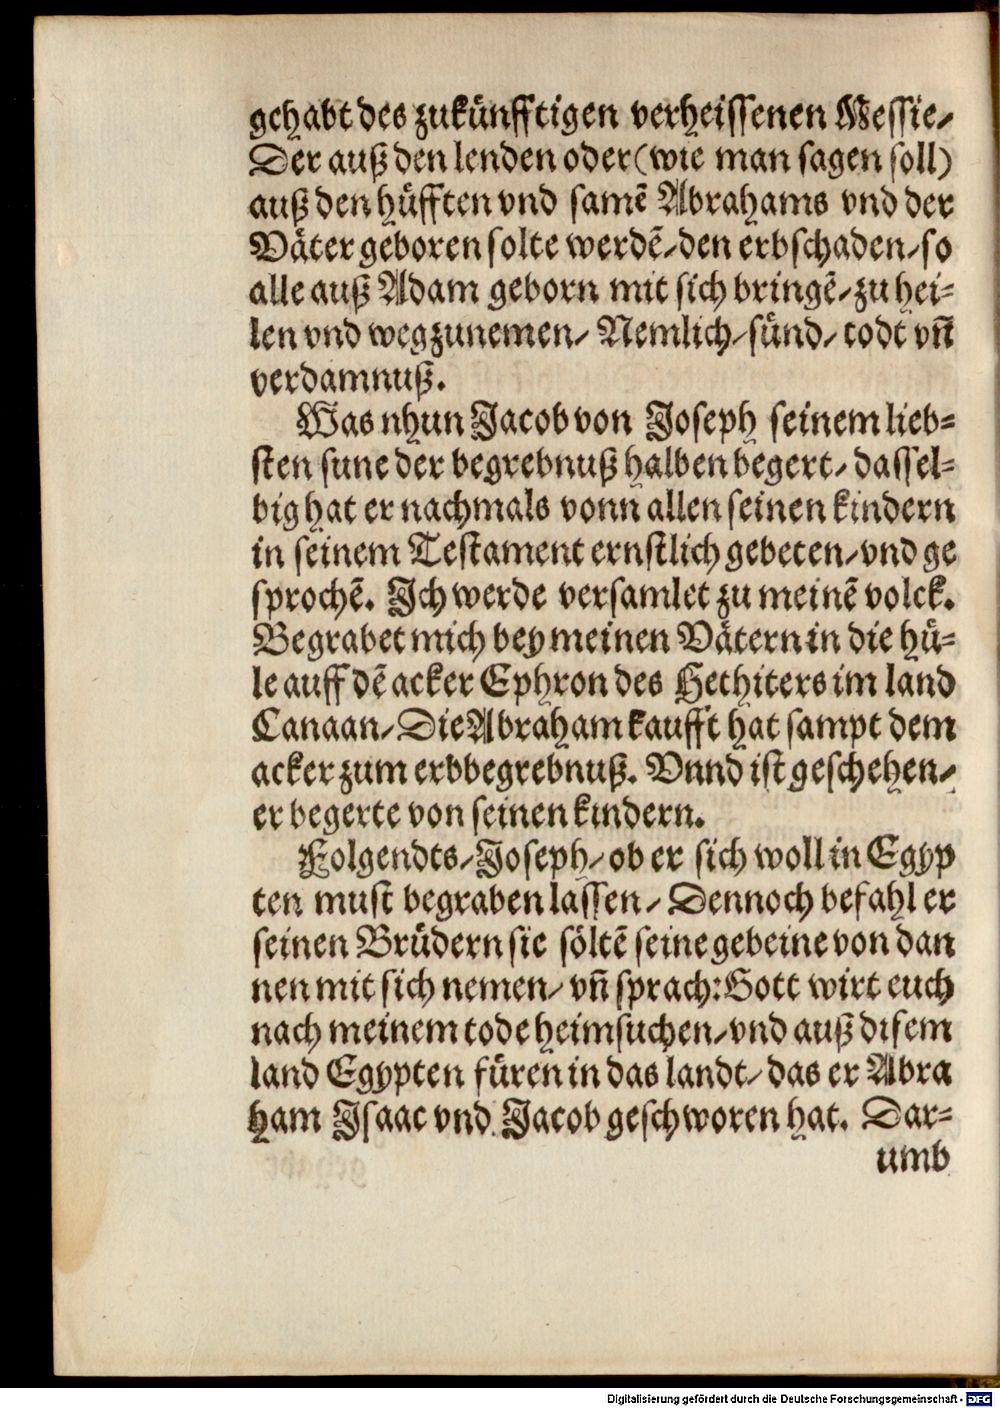 gehabt des zukünfftigen verheissenen Messie/
Der auß den lenden oder (wie man sagen soll)
auß den hüfften vnd samē Abrahams vnd der
Väter geboren solte werdē/ den erbschaden/ so
alle auß Adam geborn mit sich bringē/ zu hei=
len vnd wegzunemen/ Nemlich/ sünd/ todt vn̄
verdamnuß.
Was nhun Jacob von Joseph seinem lieb=
sten sune der begrebnuß halben begert/ dassel=
big hat er nachmals vonn allen seinen kindern
in seinem Testament ernstlich gebeten/ vnd ge
sprochē. Ich werde versamlet zu meinē volck.
Begrabet mich bey meinen Vätern in die hü=
le auff dē acker Ephron des Hethiters im land
Canaan/ Die Abraham kaufft hat sampt dem
acker zum erbbegrebnuß. Vnnd ist geschehen/
er begerte von seinen kindern.
Folgendts/ Joseph/ ob er sich woll in Egyp
ten must begraben lassen/ Dennoch befahl er
seinen Brüdern sie söltē seine gebeine von dan
nen mit sich nemen/ vn̄ sprach: Gott wirt euch
nach meinem tode heimsuchen/ vnd auß disem
land Egypten füren in das landt/ das er Abra
ham Isaac vnd Jacob geschworen hat. Dar=
umb
Digitalisierung gefördert durch die Deutsche Forschungsgemeinschaft - DFG